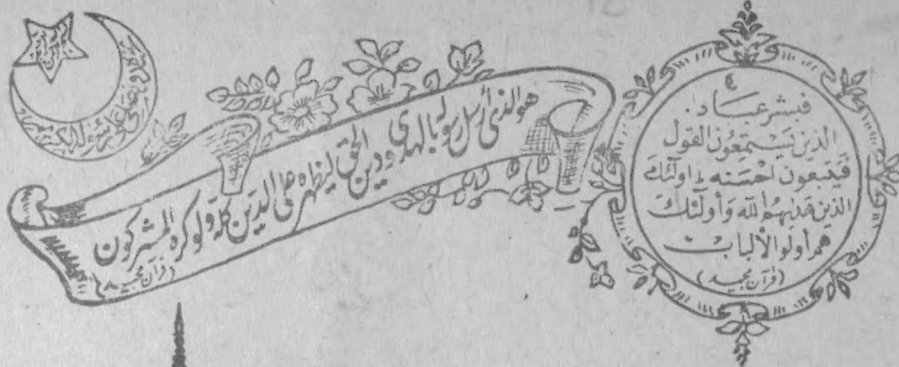 فبشر عباد
الذين يستمعون القول
فيتبعون احسنه اولئك
الذين هدىهم الله وأولئك
هم أولوا الألباب
(قرآن مجيد)
هو الذی أرسل رسوله بالهدی ودین الحق لیظهره علی الدین کله ولو کره المشرکون
(قرآن مجید)